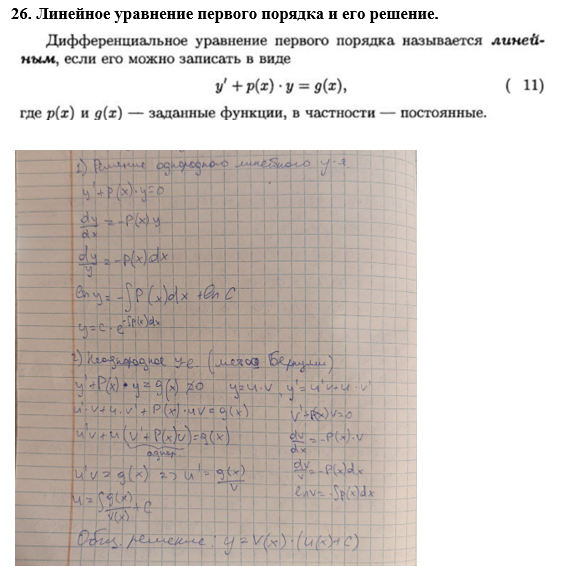 26. Линейное уравнение первого порядка и его решение.
Дифференциальное уравнение первого порядка называется линей-
ным, если его можно записать в виде
y' + p(x) · y = g(x), ( 11)
где p(x) и g(x) — заданные функции, в частности — постоянные.
1) Решение однородного линейного ур-я
y'+P(x)·y=0
dy/dx = -P(x)y
dy/y = -P(x)dx
ln y = -∫P(x)dx + ln C
y = C·e^(-∫p(x)dx)
2) Неоднородное ур-е (метод Бернулли)
y'+P(x)·y = g(x) ≠0 y=u·v, y'=u'v+u·v'
u'·v+u·v'+P(x)·uv=g(x) v'+P(x)v=0
u'v+u(v'+P(x)v)=g(x) dv/dx = -P(x)·v
однор.
u'v=g(x) => u'=g(x)/v dv/v = -P(x)dx
u=∫g(x)/v(x)+C ln v = -∫p(x)dx
Общ. решение: y=V(x)·(u(x)+C)